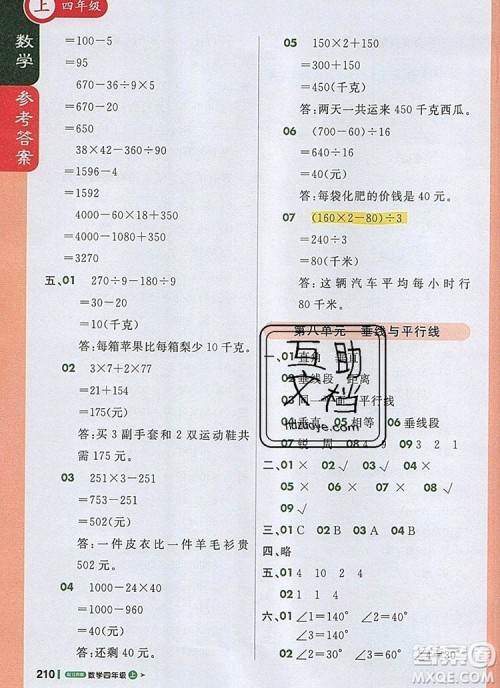 上 四年级
数学
参考答案
=100-5
=95
670-36÷9×5
=670-20
=650
38×42-360÷90
=1596-4
=1592
4000-60×18+350
=4000-1080+350
=3270
五、01 270÷9-180÷9
=30-20
=10(元)
答:每箱苹果比每箱梨贵10元。
02 3×7+2×77
=21+154
=175(元)
答:买3副手套和2双运动鞋共
需要175元。
03 251×3-251
=753-251
=502(元)
答:一件皮衣比一件羊毛衫贵
502元。
04 1000-24×40
=1000-960
=40(元)
答:还剩40元。
210 数学四年级 上
05 150×2+150
=300+150
=450(千克)
答:两天一共运来450千克西瓜。
06 (700-60)÷16
=640÷16
=40(元)
答:每袋化肥的价钱是40元。
07 (160×2-80)÷3
=240÷3
=80(千米)
答:这辆汽车平均每小时行
80千米。
第八单元 垂线与平行线
一、01 直角 垂直
02 垂线段 距离
03 同一平面 平行线
04 垂直 05 相等 06 垂线段
07 锐 周 08 4 4 09 3 2 1
二、01 × 02 √ 03 × 04 √
05 × 06 √
三、01 C 02 B 03 A 04 C 05 B
四、略
五、01 4 10 2 4
02 √ √
六、01 ∠1=140° ∠2=40°
∠3=140°
02 ∠2=60° ∠3=30° ∠4=30°
互助
文档
hdzuoye.com
答案圈
MXQE.COM